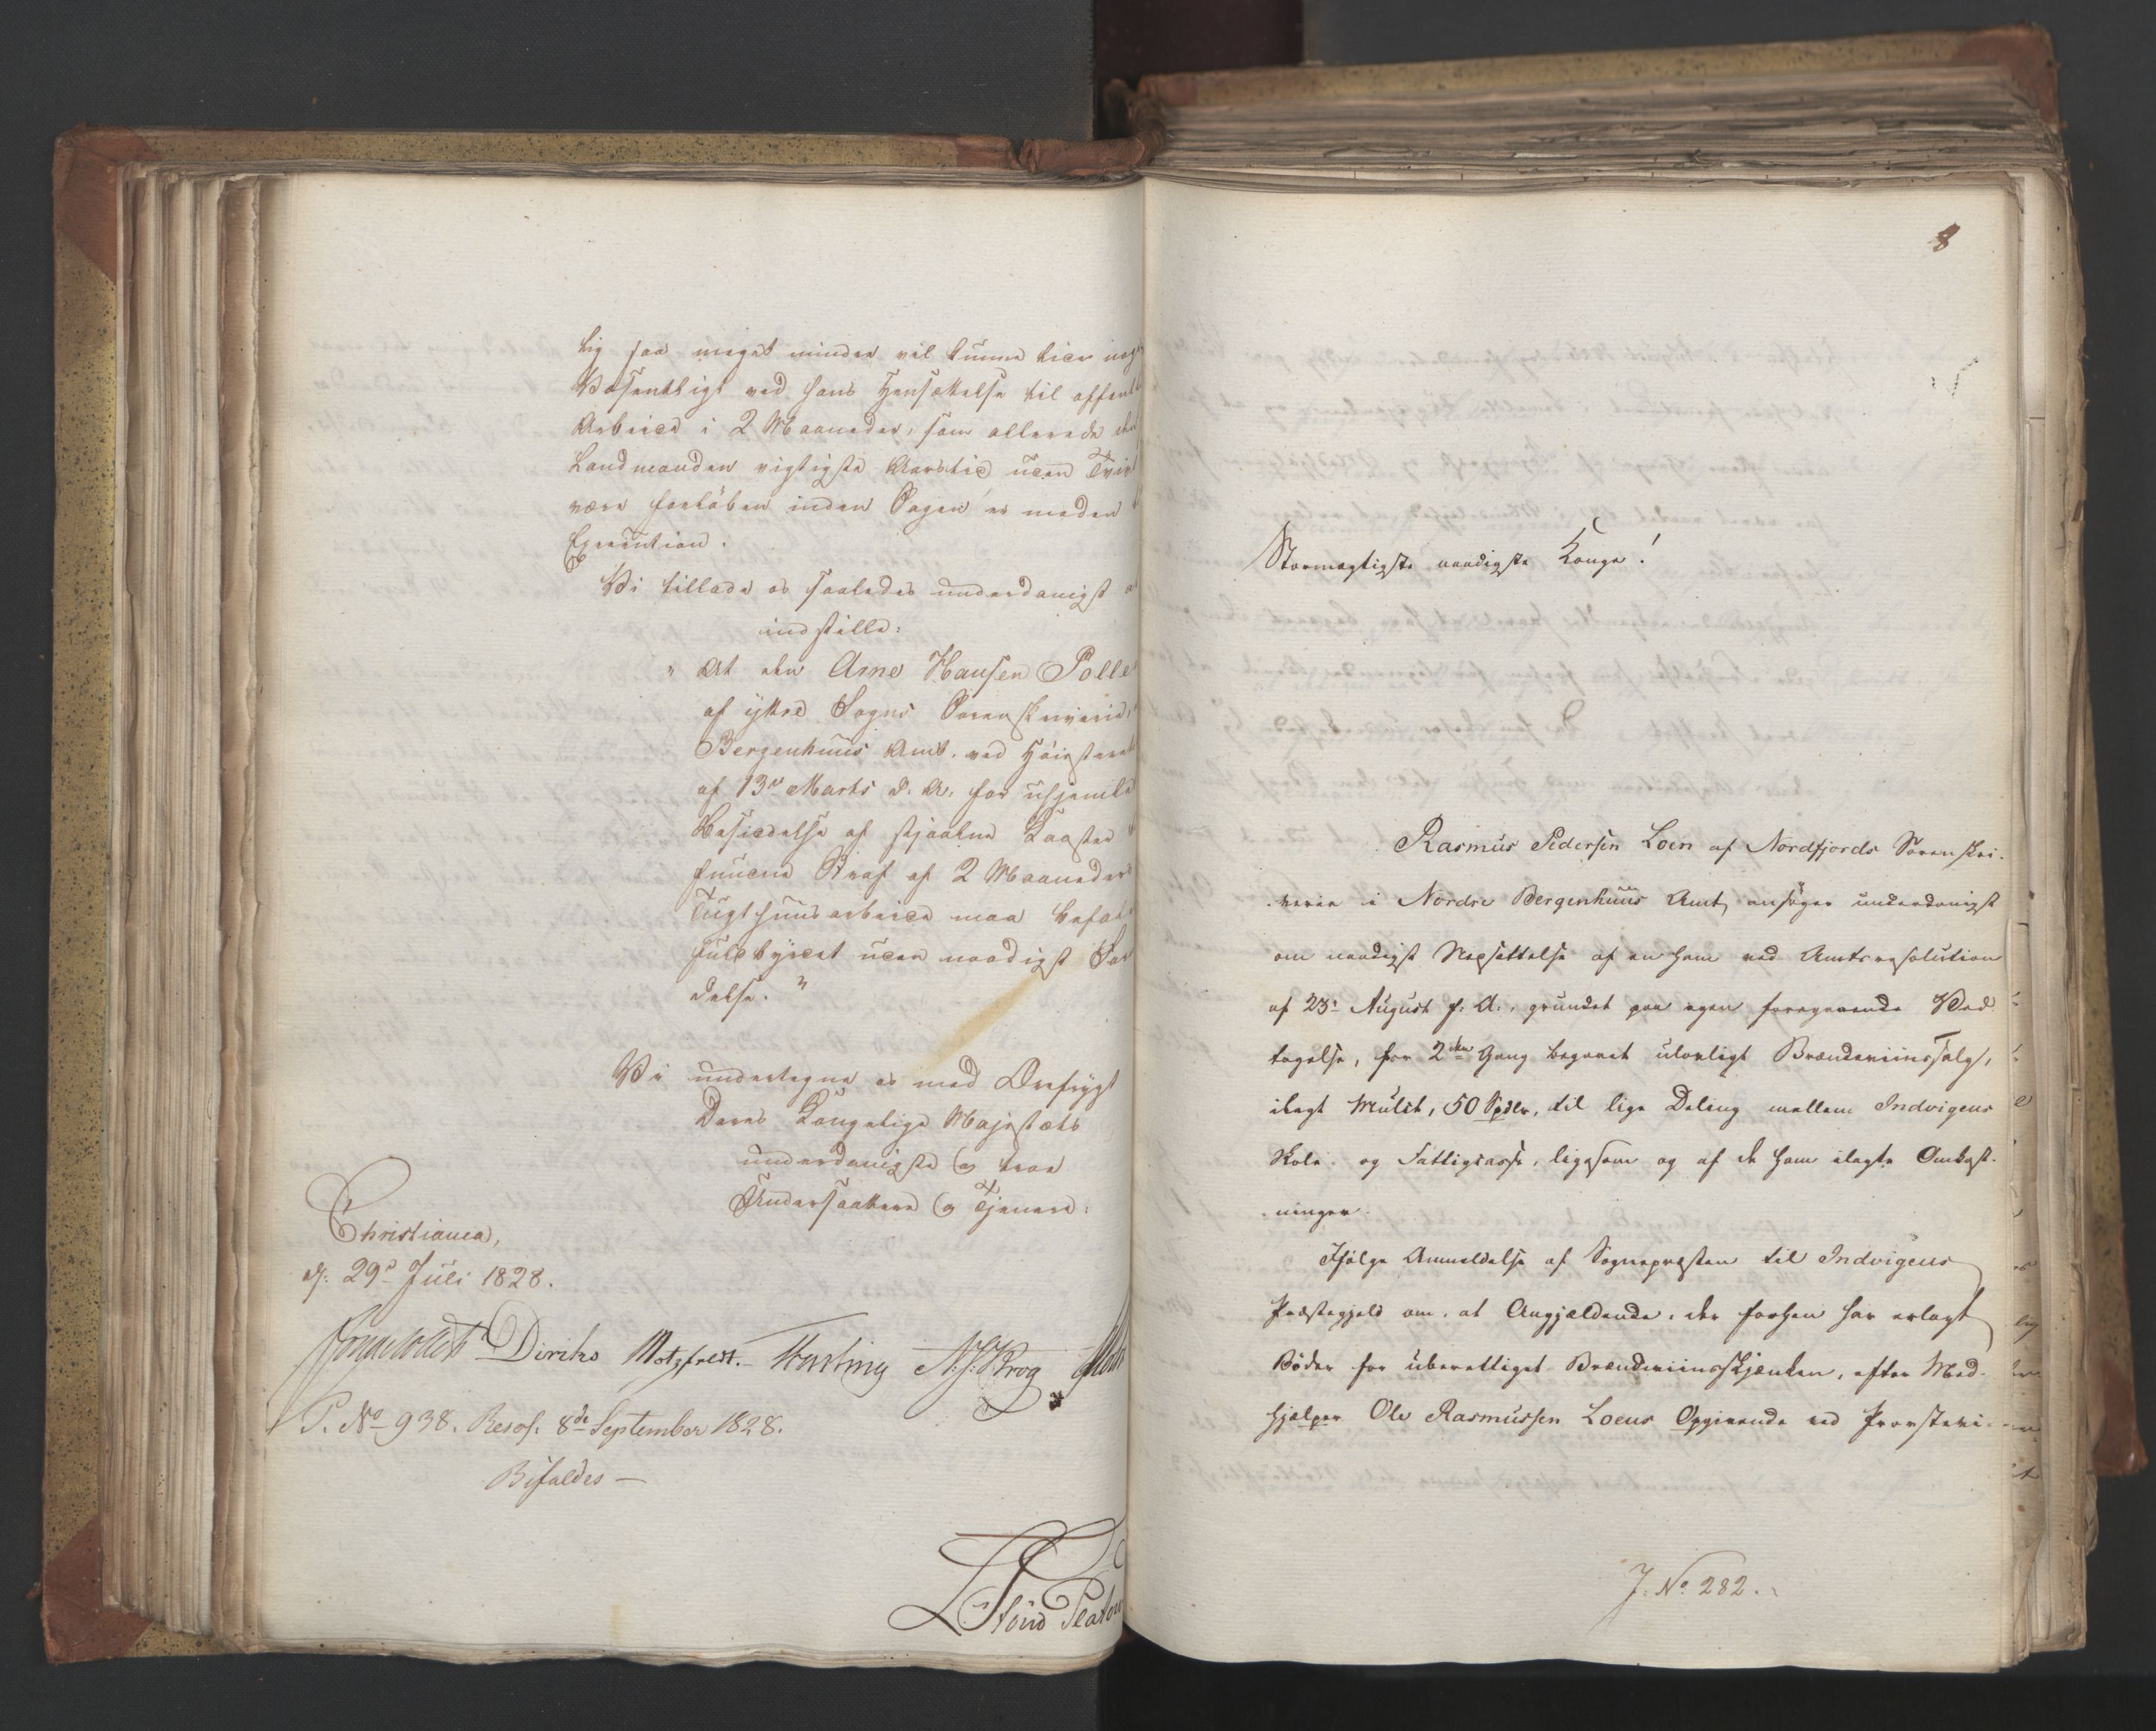 lig saa meget mindre vil kunne lide noget
Væsentligt ved hans Hensættelse til offent
Arbeide i 2 Maaneder, som allerede den
Landmanden vigtigste Aarstid uden Tvivl
være forløben inden Sagen er moden t
Execution.
Vi tillade os saaledes underdanigst at
indstille:
" At den Arne Hansen Polle
af yttre Sogns Sorenskriverie,
Bergenhuus Amt, ved Høiesteret
af 13de Marts d. A. for
Besiddelse af stjaalne Koster
fundne Straf af 2 Maaneders
Tugthuusarbeide maa befales
fuldbyrdet uden naadigst For
delse."
Vi undertegne os med Ærefrygt
Deres Kongelige Majestæts
underdanigste og troe
Undersaatter og Tjenere:
Christiania,
d. 29de Juli 1828.
Diriks Motzfeldt. Fasting N. J. Krog
P. No 938. Resol. 8de September 1828.
Bifaldes —
8
Stormægtigste naadigste Konge!
Rasmus Pedersen Loen af Nordfjords Sorenskri-
verie i Nordre Bergenhuus Amt, ansøger underdanigst
om naadigst Nedsættelse af en ham ved Amtsresolution
af 23de August f. A., grundet paa egen foregaaende Ved
tagelse, for 2den Gang begaaet ulovligt Brændeviinssalg,
ilagt Mulct, 50 Spdlr, til lige Deling mellem Indvigens
Skole- og Fattigcasse, ligesom og af de ham ilagte Omkost-
ninger.
Ifølge Anmeldelse af Sognepræsten til Indvigens
Præstegjeld om, at Angjældende, der forhen har erlagt
Bøder for uberettiget Brændeviinsskjænken, efter Med-
hjælper Ole Rasmussen Loens Opgivende ved Provsteri-
J. No 282.